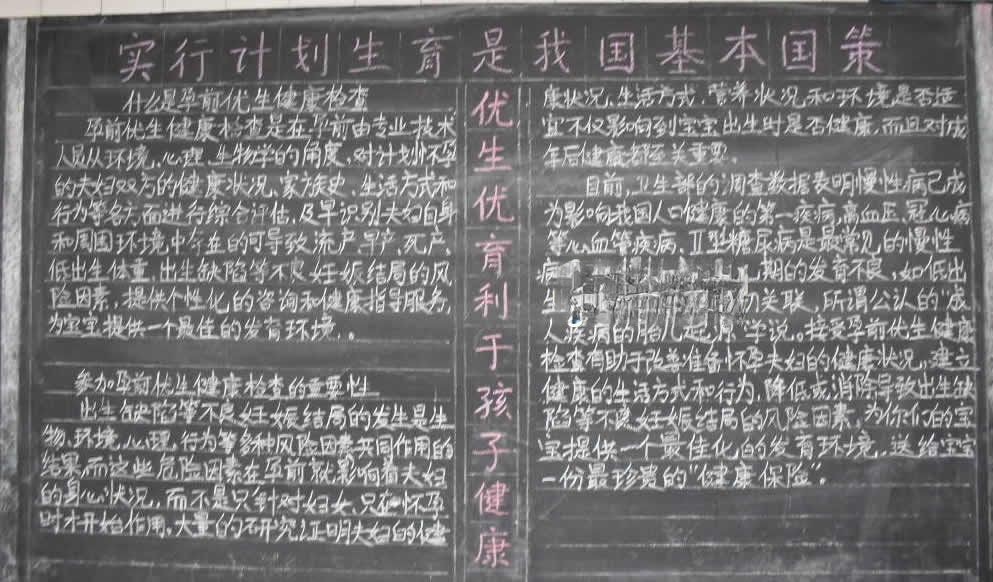 实行计划生育是我国基本国策
什么是孕前优生健康检查
孕前优生健康检查是在孕前由专业技术
人员从环境,心理,生物学的角度,对计划怀孕
的夫妇双方的健康状况,家族史、生活方式和
行为等各方面进行综合评估,及早识别夫妇自身
和周围环境中存在的可导致流产、早产、死产、
低出生体重、出生缺陷等不良妊娠结局的风
险因素,提供个性化的咨询和健康指导服务,
为宝宝提供一个最佳的发育环境。
参加孕前优生健康检查的重要性
出生缺陷等不良妊娠结局的发生是生
物、环境、心理、行为等多种风险因素共同作用的
结果,而这些危险因素在孕前就影响着夫妇
的身心状况,而不是只针对妇女,只在怀孕
时才开始作用。大量的研究证明夫妇的健
优生优育利于孩子健康
康状况、生活方式、营养状况和环境是否适
宜不仅影响到宝宝出生时是否健康,而且对成
年后健康都至关重要。
目前,卫生部的调查数据表明慢性病已成
为影响我国人口健康的第一疾病,高血压、冠心病
等心血管疾病、II型糖尿病是最常见的慢性
病 期的发育不良,如低出
生 切关联,所谓公认的“成
人疾病的胎儿起源”学说。接受孕前优生健康
检查有助于改善准备怀孕夫妇的健康状况,建立
健康的生活方式和行为,降低或消除导致出生缺
陷等不良妊娠结局的风险因素,为你们的宝
宝提供一个最佳化的发育环境,送给宝宝
一份最珍贵的“健康保险”。